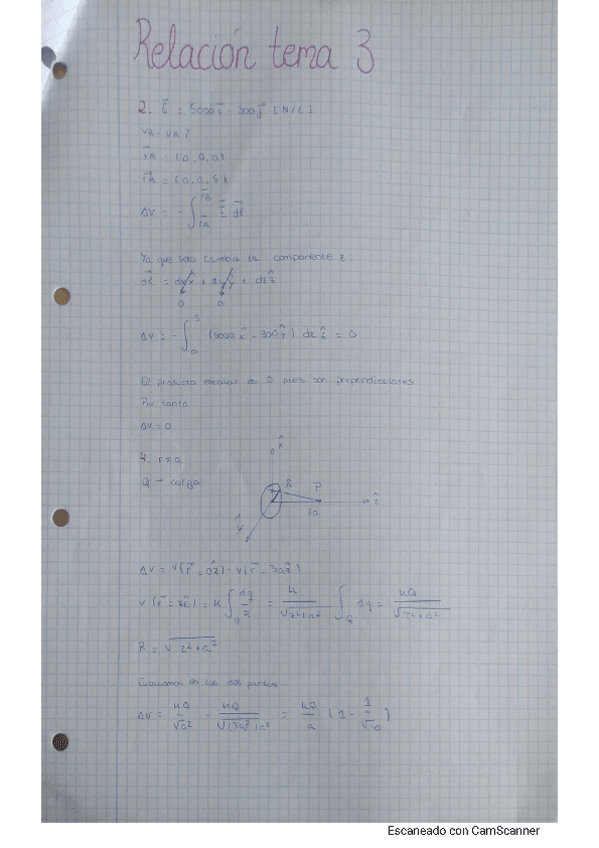 Relación tema 3
2. E⃗ = 5000 i⃗ - 300 j⃗ [N/C]
VB - VA ?
r⃗A = (0,0,0)
r⃗B = (0,0,5)
ΔV = - ∫ r⃗A r⃗B E⃗ dl⃗
Ya que solo cambia la componente z:
dl⃗ = dx x̂ + dy ŷ + dz ẑ
0 0
ΔV = - ∫ 0 5 (5000 x̂ - 300 ŷ) dz ẑ = 0
El producto escalar es 0 pues son perpendiculares
Por tanto
ΔV = 0
4. r = a
Q → carga
x̂
R P
ẑ
3a
ŷ
ΔV = V(r⃗ = 0ẑ) - V(r⃗ = 3aẑ)
V(r⃗ = zẑ) = K ∫Q dq/R = K/√(z²+a²) ∫Q dq = KQ/√(z²+a²)
R = √(z²+a²)
en los dos puntos
ΔV = KQ/√a² - KQ/√((3a)²+a²) = KQ/a (1 - 1/√10)
Escaneado con CamScanner